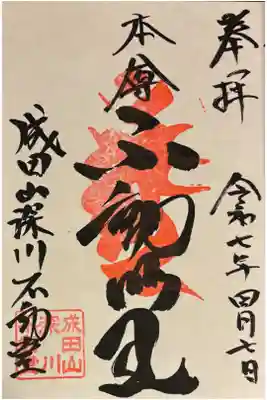 奉拝
令和七年四月七日
本尊
不動明王
成田山深川不動堂
成田山
深川